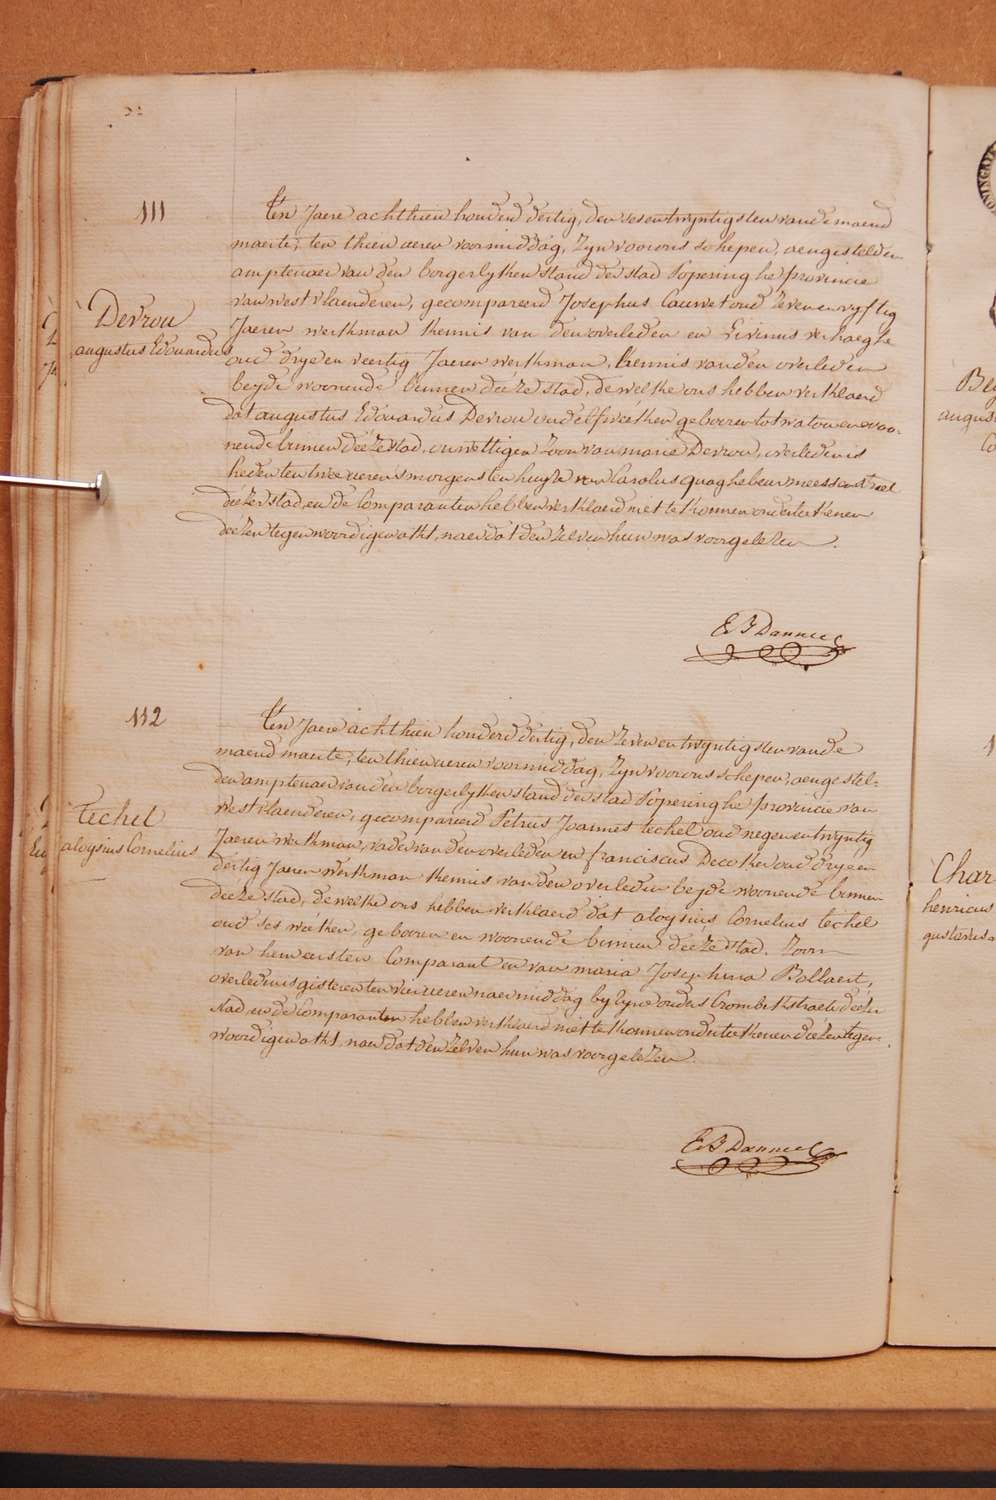 111
Devrou
augustus Edouardus
Ten Jaere achthien honderd dertig, den sesentwyntigsten van de maend
maerte, ten thien ueren voormiddag, Zyn voor ons schepen, aengestelden
amptenaer van den borgerlyken stand der stad Poperinghe provincie
van westvlaenderen, gecompareerd Josephus Cauwet oud Zevenenvyftig
Jaeren werkman kennis van den overleden en Livinus verhaeghe
oud drye en veertig Jaeren werkman, kennis van den overleden
beyde woonende binnen deeze stad, de welke ons hebben verklaerd
dat augustus Edouardus Devrou oud elf weeken geboren tot watou en woo-
nende binnen deeze stad, onwettigen Zoon van marie Devrou, overleden is
heden ten twee ueren smorgens ten huyze van Carolus quaghebeur
deezer stad, en de Comparanten hebben verklaerd niet te konnen onderteekenen
deezen tegenwoordigen akt, naer dat den zelven hun was voorgelezen.
112
Techel
aloysius Cornelius
Ten Jaere achthien honderd dertig, den Zevenentwyntigsten van de
maend maerte, ten thien ueren voormiddag, Zyn voor ons schepen, aengestel-
den amptenaer van den borgerlyken stand der stad Poperinghe provincie van
westvlaenderen, gecompareerd Petrus Joannes techel oud negenentwyntig
Jaeren werkman, vader van den overleden en franciscus Decoker oud drye en
dertig Jaeren werkman kennis van den overleden beyde woonende binnen
deeze stad, de welke ons hebben verklaerd dat aloysius Cornelius techel
oud ses weeken, geboren en woonende binnen deeze stad. Zoon
van hem eersten Comparant en van maria Josephina Bollaert,
overleden is gisteren ten vier ueren naermiddag by Zyne ouders Crombekstraete deezer
stad, en de Comparanten hebben verklaerd niet te konnen onderteekenen deezen tegen-
woordigen akt, naer dat den zelven hun was voorgelezen.